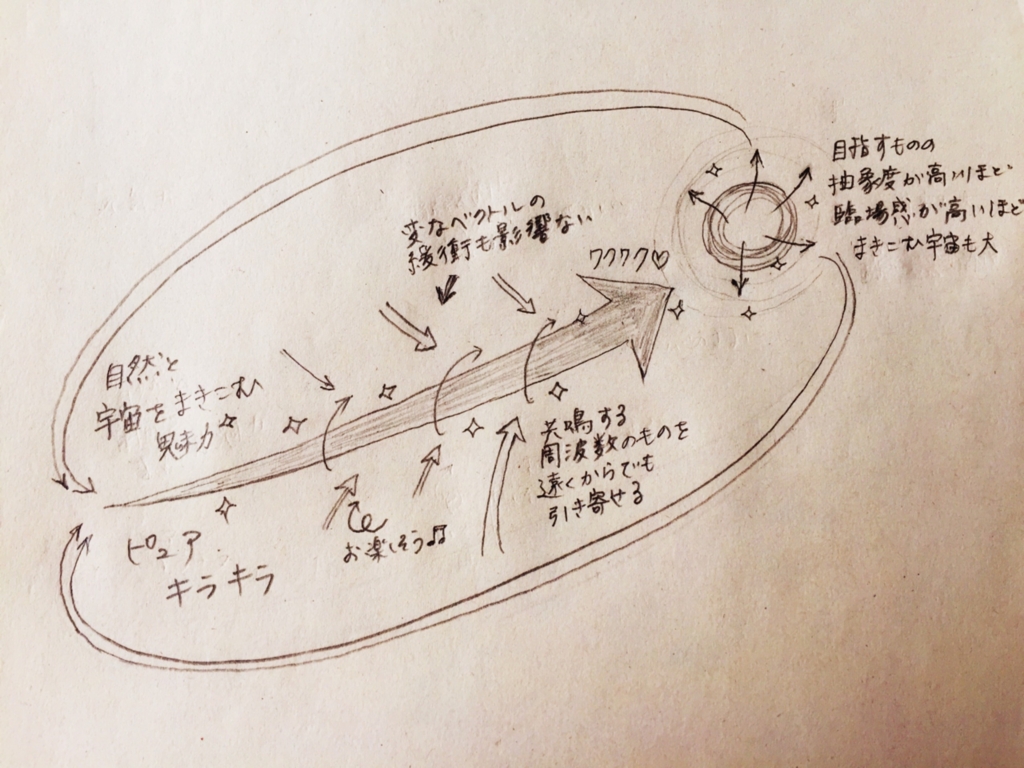 目指すものの
抽象度が高いほど
臨場感が高いほど
まきこむ宇宙も大
変なベクトルの
緩衝も影響ない…
ワクワク♡
自然と
宇宙をまきこむ
魅力
共鳴する
周波数のものを
遠くからでも
引き寄せる
お楽しそう♫
ピュア
キラキラ